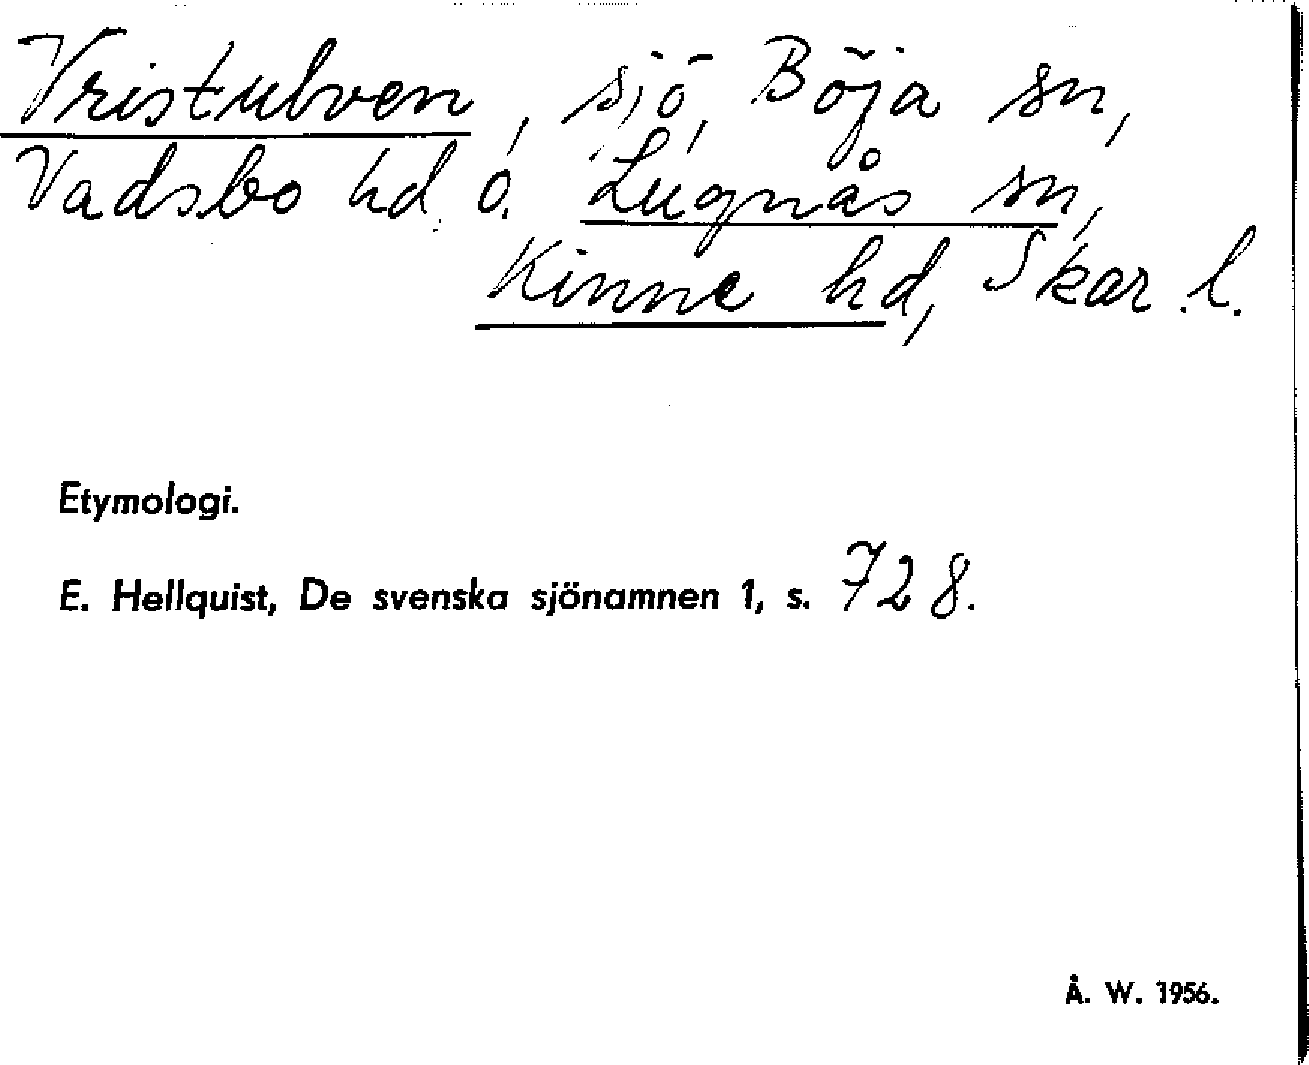 Vristulven, sjö, Böja sn,
Vadsbo hd. o. Lugnås sn,
Kinne hd, Skar. l.
Etymologi.
E. Hellquist, De svenska sjönamnen 1, s. 728.
Å. W. 1956.